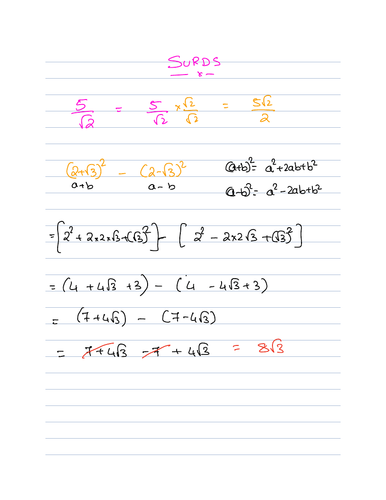 SURDS
5/√2 = 5/√2 × √2/√2 = 5√2/2
(2+√3)² - (2-√3)² (a+b)² = a²+2ab+b²
a+b a-b (a-b)² = a²-2ab+b²
= [2² + 2×2×√3+(√3)²] - [2² - 2×2√3 +(√3)²]
= (4 + 4√3 +3) - (4 - 4√3+3)
= (7+4√3) - (7-4√3)
= 7+4√3 -7 + 4√3 = 8√3